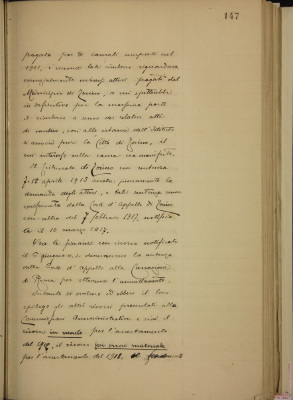 147
pagata per te causali maggiori nel
1911, e siccome tale risulta riguardava
principalmente interessi attivi pagati dal
Municipio di Torino, e cui spettabile
in definitiva per la massima parte
il risultato a uno dei relativi atti
di vendita, così alle istanze dell'Istituto
si associò pure la Città di Torino, il
cui interesse nella causa era manifesto.
Il Tribunale di Torino con sentenza
7-18 aprile 1913 accolse pienamente la
domanda degli attori, e tale sentenza venne
confermata dalla Corte d'Appello di Torino
con altra del 7 febbraio 1917, notificata
il 10 marzo 1917.
Ora le finanze con ricorso notificato
il 9 giugno u. s. denunciano la sentenza
della Corte d'Appello alla Cassazione
di Roma per ottenerne l'annullamento.
Intanto si svolsero ed ebbero il loro
epilogo gli altri ricorsi presentati alla
Commissione Amministrativa e cioè il
ricorso in merito per l'accertamento
del 1910, il ricorso per errore materiale
per l'accertamento del 1912.